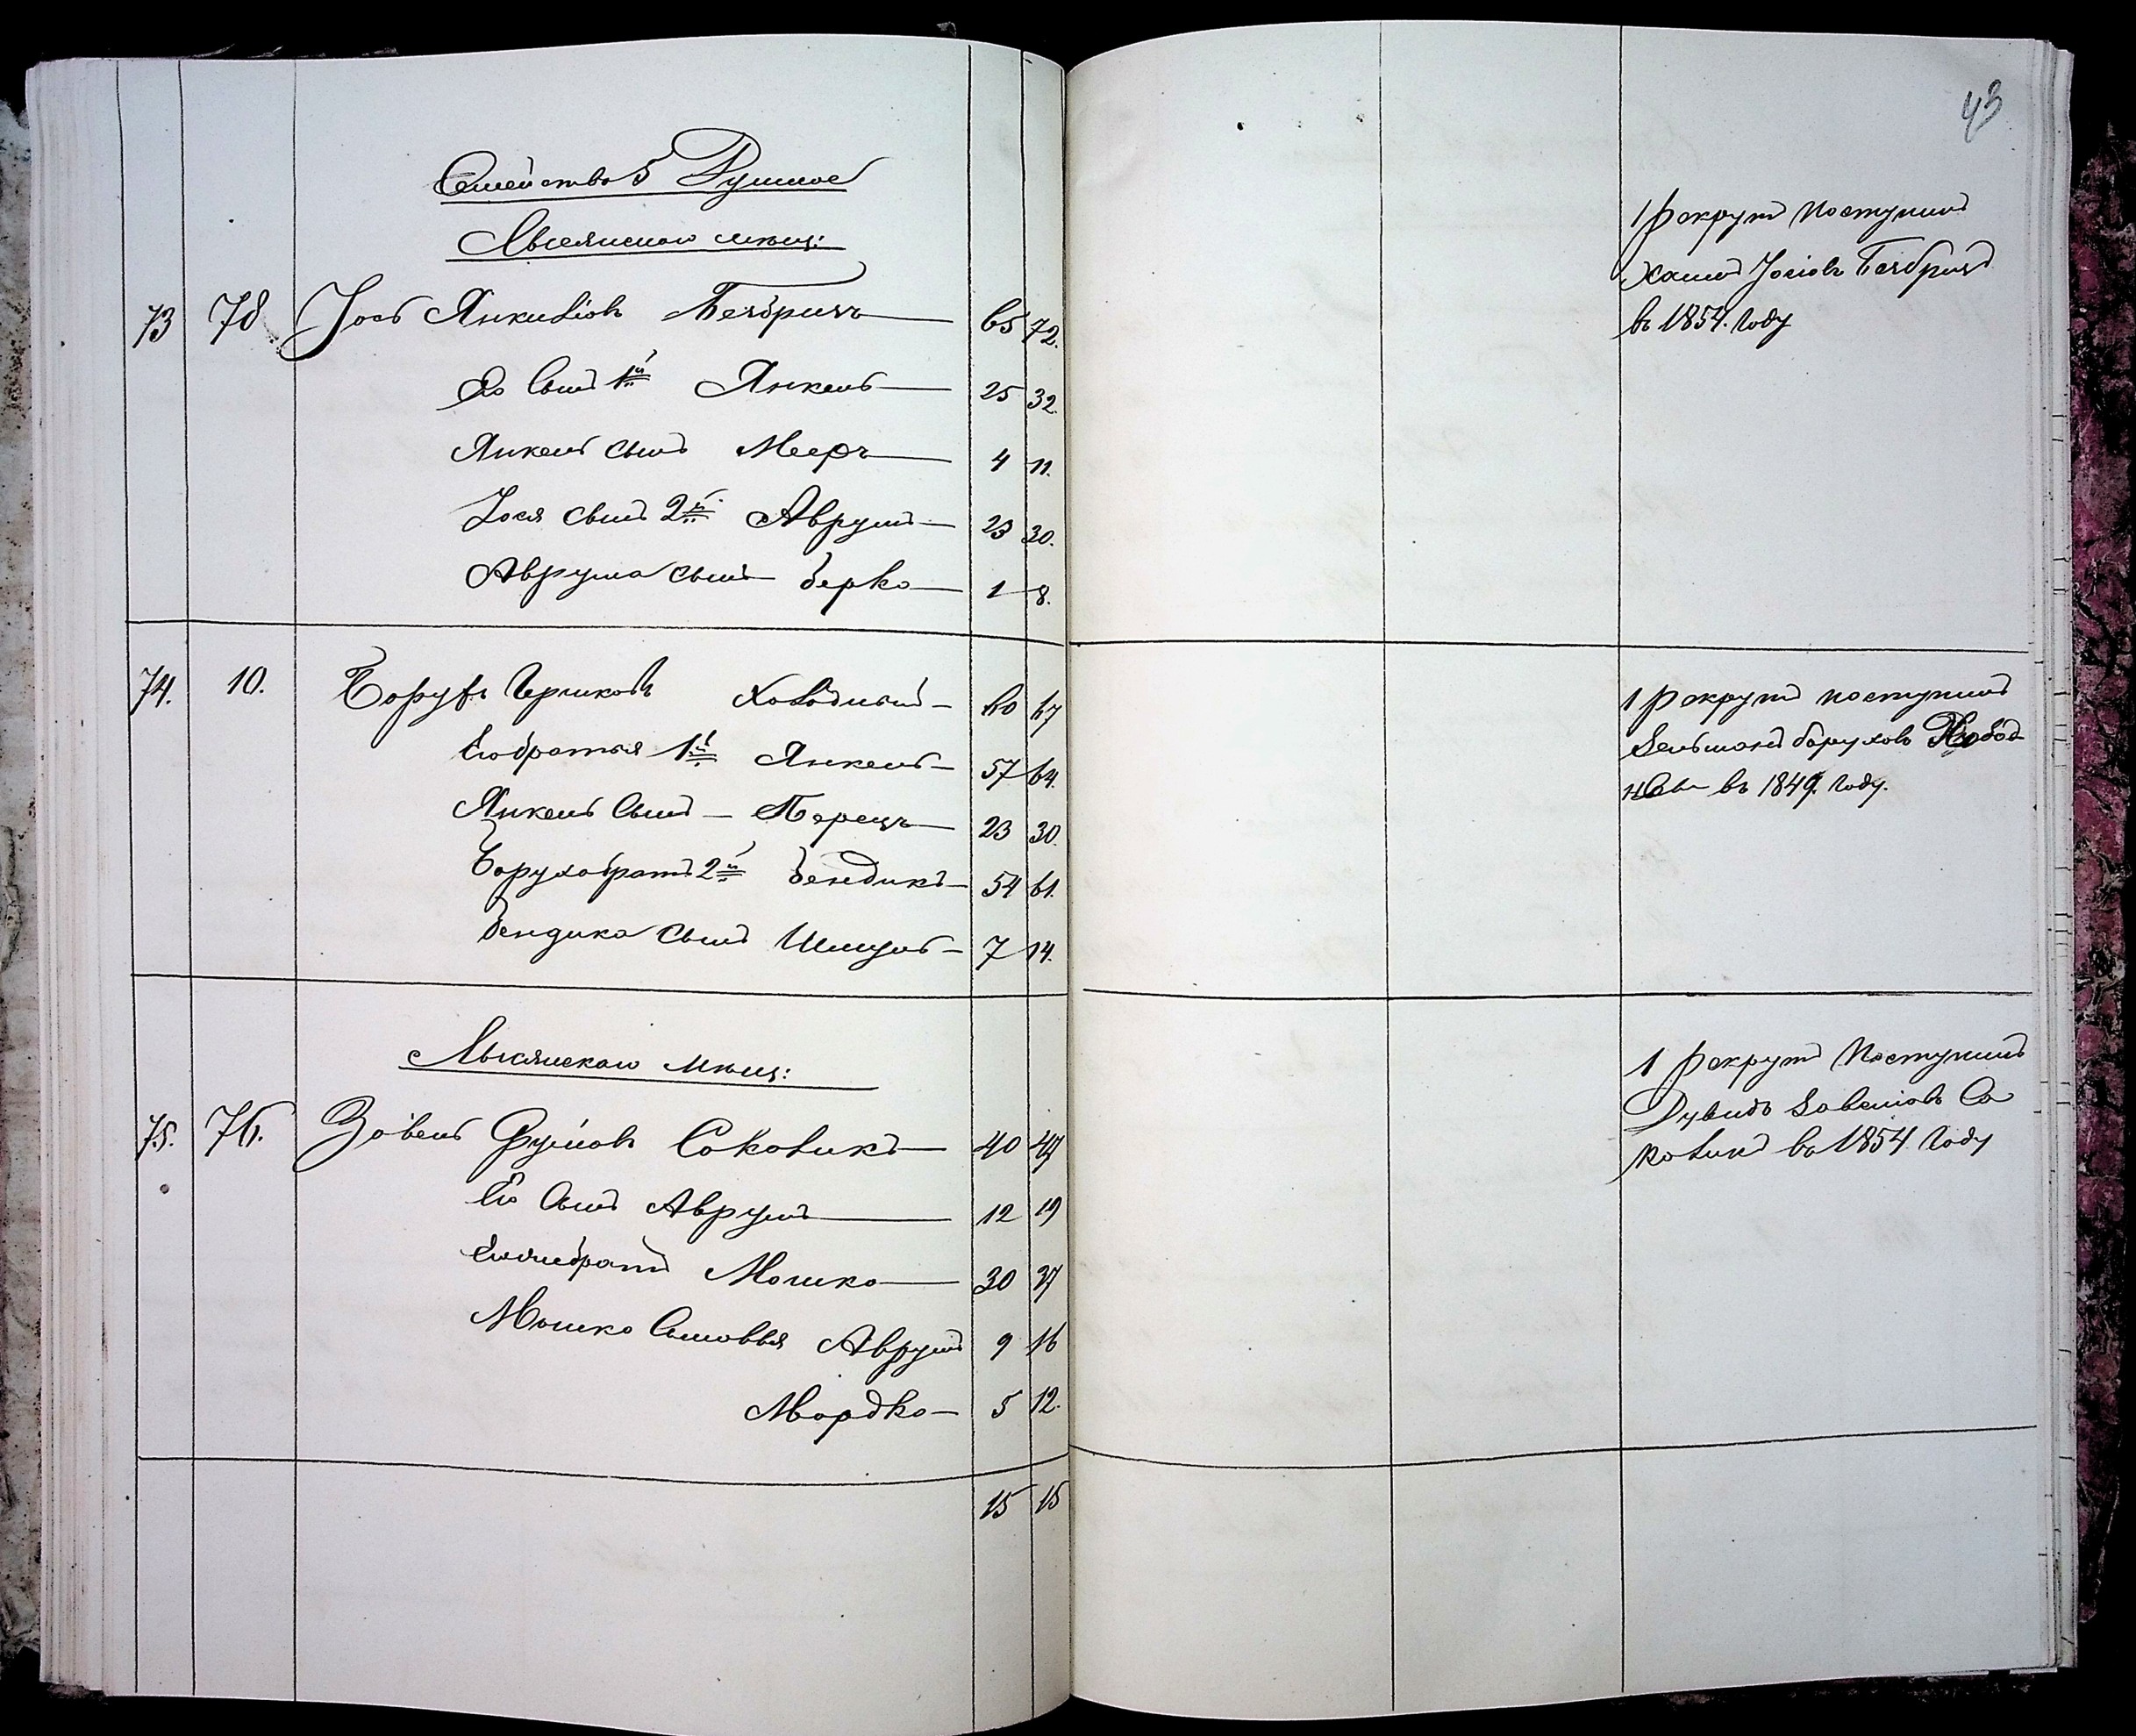 Семейство 5 Душное
Лысянскаго мѣщ:
73 78 Іось Янкиліовъ Безбричъ 65 72.
Его Сынъ 1й Янкель 25 32.
Янкель сынъ Мееръ 4 11.
Іося сынъ 2й Аврумъ 23 30.
Аврума сынъ Берко 1 8.
74. 10. Борухъ Гершковъ Холодный 60 67
Его братья 1й Янкель 57 64.
Янкель Сынъ Перецъ 23 30.
Боруха братъ 2й Бендикъ 54 61.
Бендика сынъ Шмуль 7 14.
Лысянскаго мѣщ:
75. 76. Зовель Фроимовъ Соколикъ 40 47
Его Сынъ Аврумъ 12 19
Зовеля братъ Мошко 30 37
Мошко Сыновья Аврумъ 9 16
Мордко 5 12.
15 15
43
1 рекрутъ поступилъ
Хаимъ Іосіовъ Безбричъ
въ 1854. году
1 рекрутъ поступилъ
Зельманъ Боруховъ Холод
ный въ 1849. году.
1 рекрутъ поступилъ
Дувидъ Зовеліовъ Со
коликъ въ 1854 году